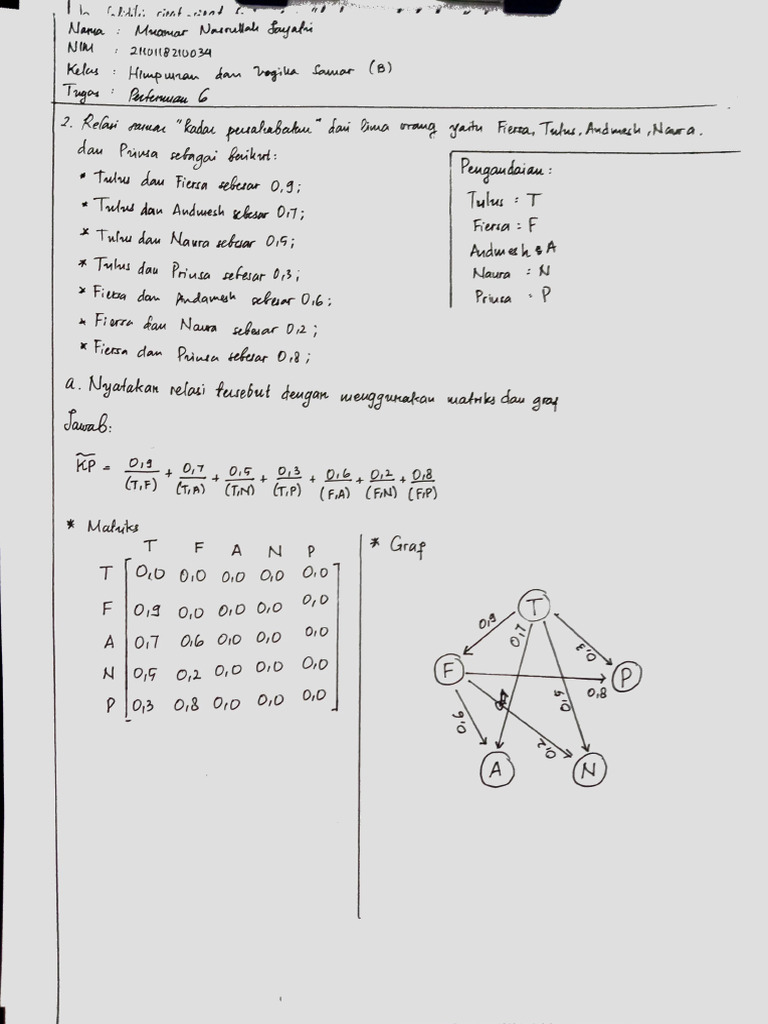 Nama : Muamar Nasrullah Sayafri
NIM : 2110118210034
Kelas : Himpunan dan Logika Samar (B)
Tugas : Pertemuan 6
2. Relasi samar "kadar persahabatan" dari lima orang yaitu Fiersa, Tulus, Andmesh, Naura.
dan Prinsa sebagai berikut:
* Tulus dan Fiersa sebesar 0,9;
* Tulus dan Andmesh sebesar 0,7;
* Tulus dan Naura sebesar 0,5;
* Tulus dan Prinsa sebesar 0,3;
* Fiersa dan Andamesh sebesar 0,6;
* Fiersa dan Naura sebesar 0,2;
* Fiersa dan Prinsa sebesar 0,8;
Pengandaian :
Tulus : T
Fiersa : F
Andmesh : A
Naura : N
Prinsa : P
a. Nyatakan relasi tersebut dengan menggunakan matriks dan graf
Jawab:
K̃P = 0,9/(T,F) + 0,7/(T,A) + 0,5/(T,N) + 0,3/(T,P) + 0,6/(F,A) + 0,2/(F,N) + 0,8/(F,P)
* Matriks
T F A N P
T 0,0 0,0 0,0 0,0 0,0
F 0,9 0,0 0,0 0,0 0,0
A 0,7 0,6 0,0 0,0 0,0
N 0,5 0,2 0,0 0,0 0,0
P 0,3 0,8 0,0 0,0 0,0
* Graf
T
0,9 0,7 0,3
F P
0,8
0,6 0,5
0,2
A N